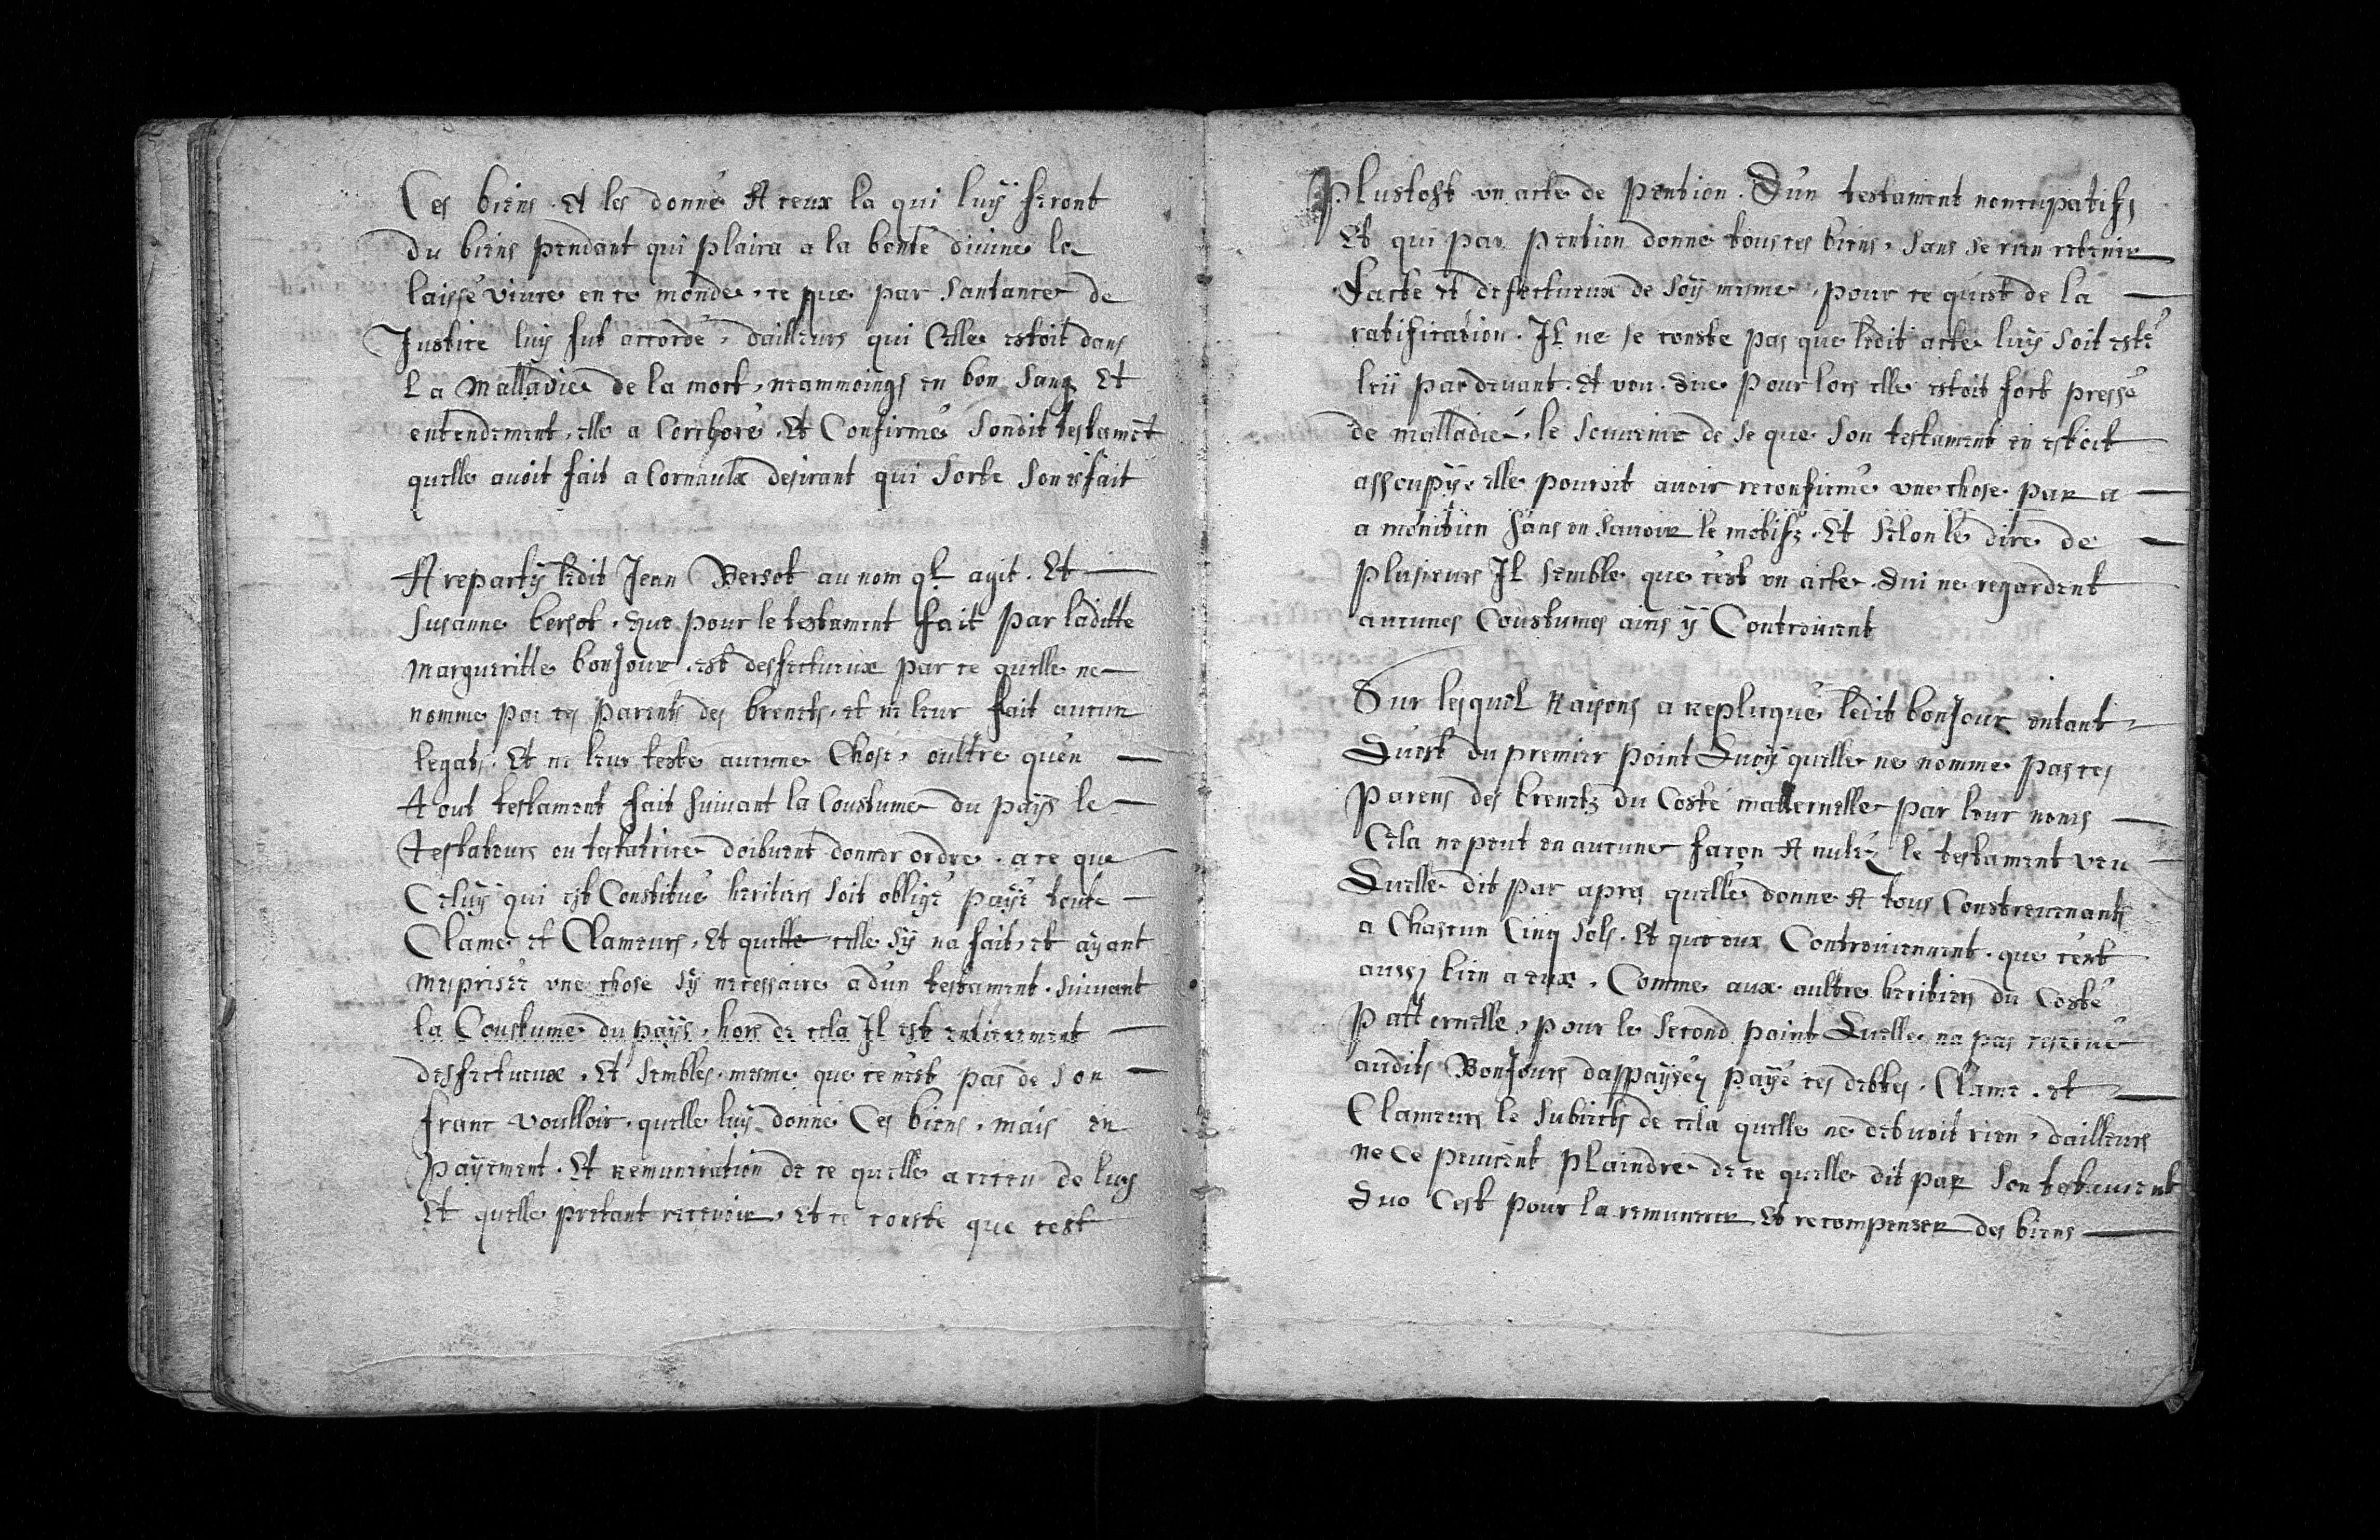 Ces biens. Et les donné A ceux la qui luÿ feront
du biens pendant qui plaira a la bonté diuine le
laissé viure en ce monde, ce que par santance de
Justice luy fut accordé, dailleurs qui Celle estoit dans
La Malladie de la mort, neammoings en bon sang Et
entendement, elle a Corrboré, Et Confirmé sondit testament
quelle auoit fait a Cornaulx desirant qui sorte son esfait
A repartÿ ledit Jean Bersot au nom ql agit. Et
Susanne bersot, que pour le testament fait par laditte
Margueritte bonJour, est desfectueux par ce quelle ne
nomme pas ces parents des brenets, et ne leur fait aucun
legats. Et ne leur teste aucune Chose, oultre quen
A tout testament fait suiuant la Coustume du paÿs le
testateurs ou testatrice doibuent donner ordre, a ce que
Celuÿ qui est Constitué heritiers soit obligé paÿé toute
Clame et Clameurs, Et quelle celle sÿ na fait, et aÿant
mesprisée vne chose sÿ necessaire a dun testament, suiuant
la Coustume du paÿs, hors de cela Il est entierement
desfectueux, Et sembles mesme que ce nest pas de son
franc voulloir, quelle luÿ donne Ces biens, mais en
paÿement. Et remuneration de ce quelle a receu de luy
Et quelle pretant receuoir, et ce conste que cest
Plustost vn acte de pention. Dun testament noncupatifs
Et qui par pention donne tous ces biens, sans se rien retenir
Lacte et defectueux de soÿ mesme, pour ce quest de la
ratification. Il ne se conste pas que ledit acte luÿ soit esté
leü par deuant. Et veu que pour lors elle estoit fort pressé
de malladie, le souuenir de se que son testament en estoit
assoupÿ, elle pouroit auoir reconfirmé vne chose par a
a monition sans en sauoir le motifs. Et selon le dire de
plusieurs Il semble que cest vn acte qui ne regardent
aucunes Coustumes ains ÿ Controuient
Sur lesquel Raisons a replicqué ledit bonJour entant
Quest du premier point Quoÿ quelle ne nomme pas ces
parens des brenetz du Costé matternelle par leur noms
Cela ne peut en aucune facon A nulez le testament veu
Quelle dit par apres quelle donne A tous Constreuenants
a Chascun Cinq sols. Et que eux Controuiennent, que cest
aussi bien a eux, Comme aux aultre heritiers du Costé
Patternelle, pour le second point Quelle na pas reserué
audits BonJours dappaÿsez paÿé ces debtes, Clame, et
Clameurs le subiects de cela quelle ne debuoit rien, dailleurs
ne Ce peuuent plaindre de ce quelle dit par son testament
Que Cest pour la remunerer Et recompenser des biens